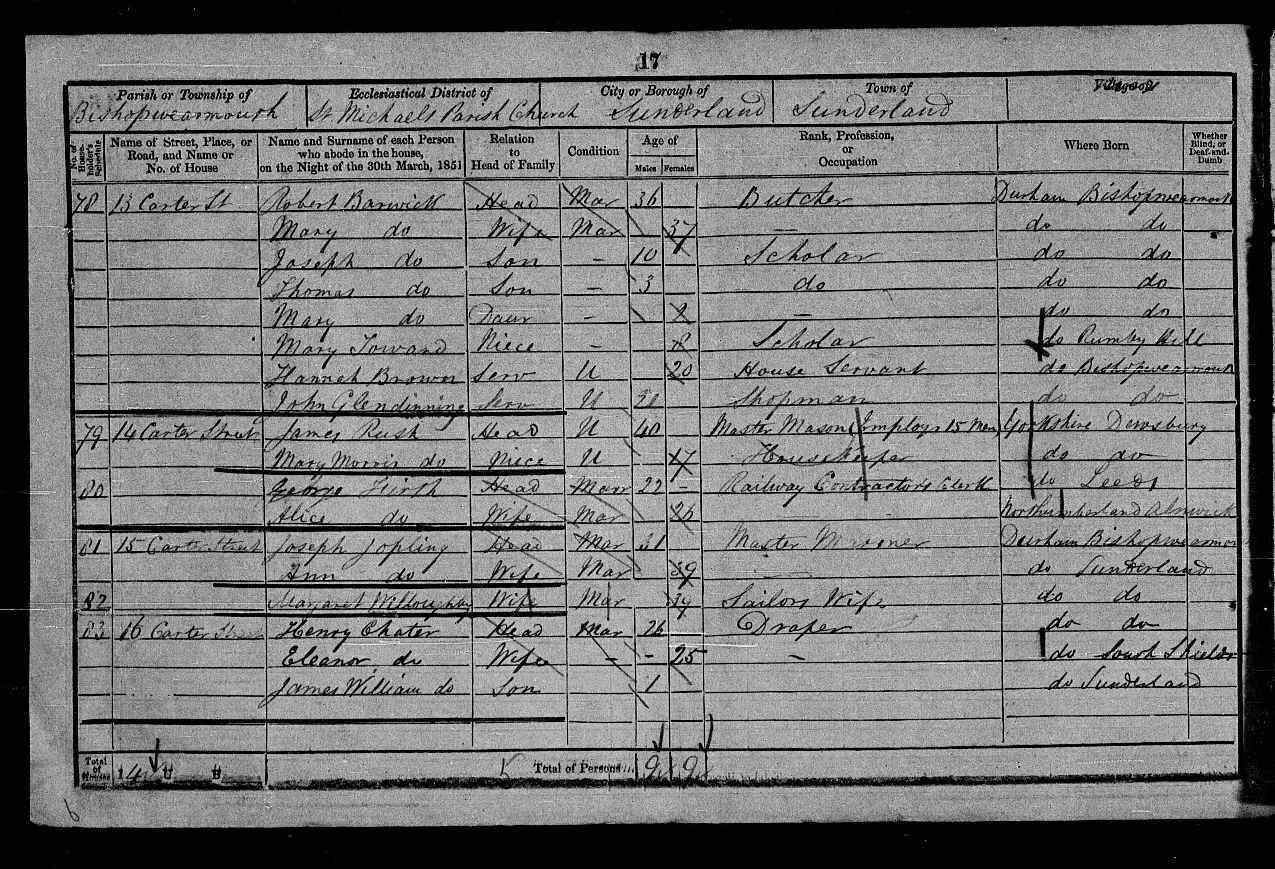 17
Parish or Township of Ecclesiastical District of City or Borough of Town of Village of
Bishopwearmouth St Michaels Parish Church Sunderland Sunderland
No. of House-holder's Schedule Name of Street, Place, or Road, and Name or No. of House Name and Surname of each Person who abode in the house, on the Night of the 30th March, 1851 Relation to Head of Family Condition Age of Males Females Rank, Profession, or Occupation Where Born Whether Blind, or Deaf-and-Dumb
78 13 Carter St Robert Barwick Head Mar 36 Butcher Durham Bishopwearmouth
Mary do Wife Mar 37 — do do
Joseph do Son — 10 Scholar do do
Thomas do Son — 3 do do do
Mary do Daur — — do do
Mary Toward Niece — 8 Scholar do Rumby Hill
Hannah Brown Serv U 20 House Servant do Bishopwearmouth
John Glendinning Serv U Shopman do do
79 14 Carter Street James Rush Head U 40 Master Mason (Employs 15 Men) Yorkshire Dewsbury
Mary Morris do Niece U 17 Housekeeper do do
80 George Firth Head Marr 22 – Railway Contractors Clerk do Leeds
Alice do Wife Mar 26 Northumberland Alnwick
81 15 Carter Street Joseph Jopling Head Mar 31 Master Mariner Durham Bishopwearmouth
Ann do Wife Mar 39 — do Sunderland
82 Margaret Willoughby Wife Mar 39 Sailors Wife do do
83 16 Carter Street Henry Chater Head Mar 26 Draper do do
Eleanor do Wife – – 25 – do South Shields
James William do Son 1 do Sunderland
Total of Houses 4 Total of Persons... 9 9
6